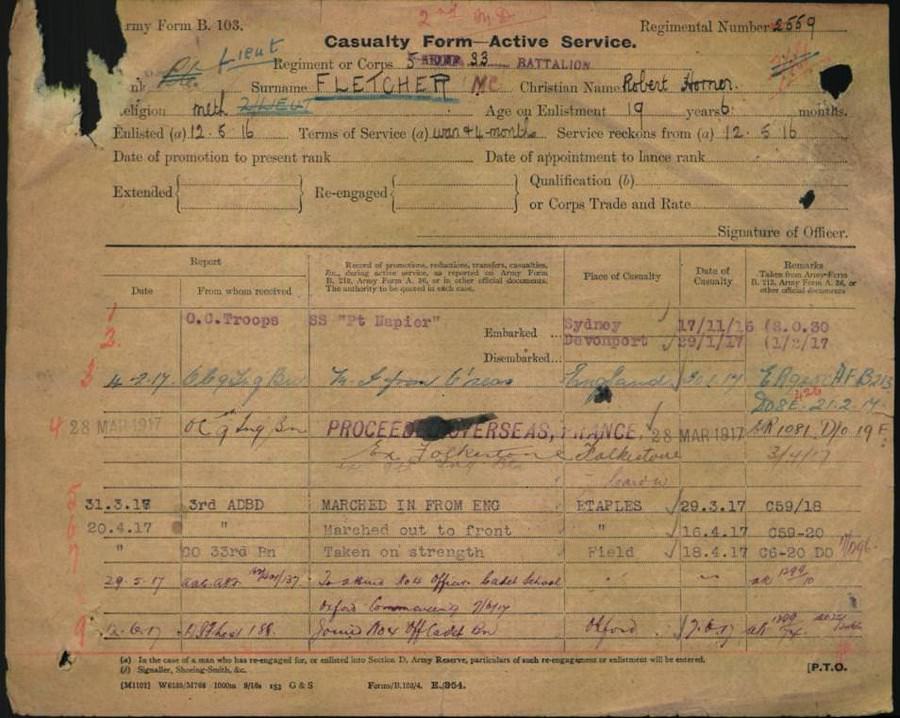 2nd M.D.
rmy Form B. 103.
Regimental Number 2559
Casualty Form—Active Service.
Lieut
Regiment or Corps 33 BATTALION
Pte Surname FLETCHER MC Christian Name Robert Horner.
eligion meth 2/LIEUT Age on Enlistment 19 years 6 months.
Enlisted (a) 12.5.16 Terms of Service (a) war & 4 months Service reckons from (a) 12.5.16
Date of promotion to present rank Date of appointment to lance rank
Extended Re-engaged Qualification (b)
or Corps Trade and Rate
Signature of Officer.
Report
Date From whom received
Record of promotions, reductions, transfers, casualties, &c., during active service, as reported on Army Form B. 213, Army Form A. 36, or in other official documents. The authority to be quoted in each case.
Place of Casualty
Date of Casualty
Remarks
Taken from Army Form B. 213, Army Form A. 36, or other official documents
1 O.C.Troops SS "Pt Napier" Embarked Sydney 17/11/16 (8.0.30
2. Disembarked... Devonport 29/1/17 (1/2/17
3 4-2-17. England A F B 213
21.2.17
4 28 MAR 1917 OC 9 Trng Bn PROCEEDE OVERSEAS, FRANCE, 28 MAR 1917 1081 D/o 19
Ex Folkestone Folkestone 3/4/17
5 31.3.17 3rd ADBD MARCHED IN FROM ENG ETAPLES 29.3.17 C59/18
6 20.4.17 " Marched out to front " 16.4.17 C59-20
7 " CO 33rd Bn Taken on strength Field 18.4.17 C6-20 DO
29-5-17 To attend No 4 Officer Cadet School
Oxford Commencing 7/6/17
9 Joined No 4 Off Cadet Bn Oxford 7.6.17
(a) In the case of a man who has re-engaged for, or enlisted into Section D, Army Reserve, particulars of such re-engagement or enlistment will be entered.
Signaller, Shoeing-Smith, &c.
[P.T.O.
[M1101] W6185/M768 1000m 9/16s 153 G & S Form/B.103/4. E./354.